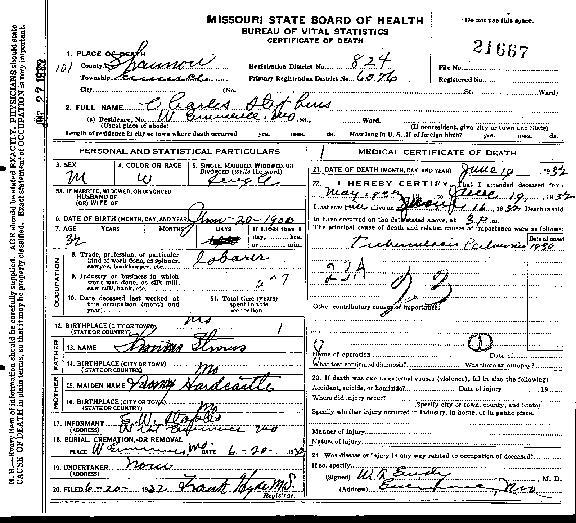 MISSOURI STATE BOARD OF HEALTH
BUREAU OF VITAL STATISTICS
CERTIFICATE OF DEATH
Do not use this space.
21667
1. PLACE OF DEATH
County Shannon
Registration District No. 824
File No.
Township
Primary Registration District No. 6076
Registered No.
City
(No.
St.
Ward)
2. FULL NAME Charles
(a) Residence, No.
St.
Ward.
(Usual place of abode)
(If nonresident, give city or town and State)
Length of residence in city or town where death occurred yrs. mos. ds. How long in U. S., if of foreign birth? yrs. mos. ds.
PERSONAL AND STATISTICAL PARTICULARS
3. SEX
M
4. COLOR OR RACE
W
5. SINGLE, MARRIED, WIDOWED, OR DIVORCED (write the word)
Single
5A. IF MARRIED, WIDOWED, OR DIVORCED
HUSBAND OF
(OR) WIFE OF
6. DATE OF BIRTH (MONTH, DAY, AND YEAR) 20-1900
7. AGE YEARS MONTHS DAYS If LESS than 1 day, hrs. or min.
32
OCCUPATION
8. Trade, profession, or particular kind of work done, as spinner, sawyer, bookkeeper, etc.
Laborer
9. Industry or business in which work was done, as silk mill, saw mill, bank, etc.
10. Date deceased last worked at this occupation (month and year)
11. Total time (years) spent in this occupation
12. BIRTHPLACE (CITY OR TOWN)
(STATE OR COUNTRY)
Mo
FATHER
13. NAME Thomas
14. BIRTHPLACE (CITY OR TOWN)
(STATE OR COUNTRY)
Mo
MOTHER
15. MAIDEN NAME Hardcastle
16. BIRTHPLACE (CITY OR TOWN)
(STATE OR COUNTRY)
Mo
17. INFORMANT
(ADDRESS)
18. BURIAL, CREMATION, OR REMOVAL
PLACE Mo. DATE 6-20- 1932
19. UNDERTAKER None
(ADDRESS)
20. FILED 6-20- 1932 Frank Hyde M.D.
Registrar.
MEDICAL CERTIFICATE OF DEATH
21. DATE OF DEATH (MONTH, DAY, AND YEAR) June 19 1932
22. I HEREBY CERTIFY, That I attended deceased from
May June 19, 1932
I last saw alive on 16 1932 Death is said
to have occurred on the date stated above, at 3 P.m.
The principal cause of death and related causes of importance were as follows:
Date of onset
Tuberculosis 1930
23A
Other contributory causes of importance:
Name of operation
Date of
What test confirmed diagnosis?
Was there an autopsy?
23. If death was due to external causes (violence), fill in also the following:
Accident, suicide, or homicide? Date of injury 19
Where did injury occur?
(Specify city or town, county, and State)
Specify whether injury occurred in industry, in home, or in public place.
Manner of injury
Nature of injury
24. Was disease or injury in any way related to occupation of deceased?
If so, specify
(Signed) M. D.
(Address) Mo
N. B.—Every item of information should be carefully supplied. AGE should be stated EXACTLY. PHYSICIANS should state
CAUSE OF DEATH in plain terms, so that it may be properly classified. Exact statement of OCCUPATION is very important.